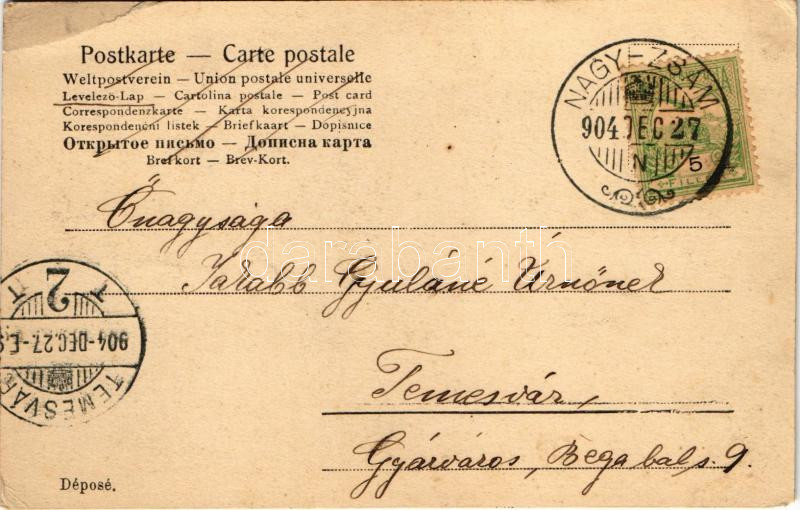 Postkarte — Carte postale
Weltpostverein — Union postale universelle
Levelező-Lap — Cartolina postale — Post card
Correspondenzkarte — Karta korespondencyjna
Korespondenční listek — Briefkaart — Dopisnice
Открытое письмо — Дописна карта
Brefkort — Brev-Kort.
NAGY-ZSÁM
904 DEC 27
N
5
FILLÉR
Őnagysága
Jarabb Gyuláné Úrnőnek
darabanth
2
T T
904-DEC.27-E.
TEMESVÁR
Temesvár,
Gyárváros, Bega bals. 9.
Déposé.